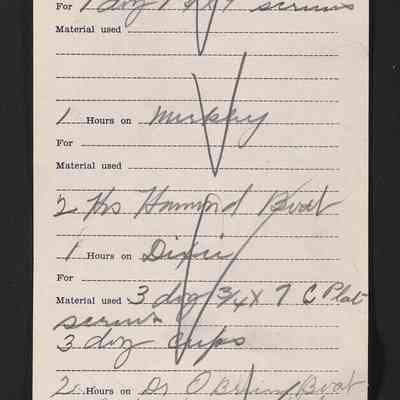 For 1 doz 1 1/4 x 9 screws
Material used
1 Hours on
For
Material used
2 Hrs Hammond Boat
1 Hours on Dixie
For
Material used 3 doz 3/4 x 7 C Plat
screws
3 doz cups
2 Hours on Dr O'Brien Boat